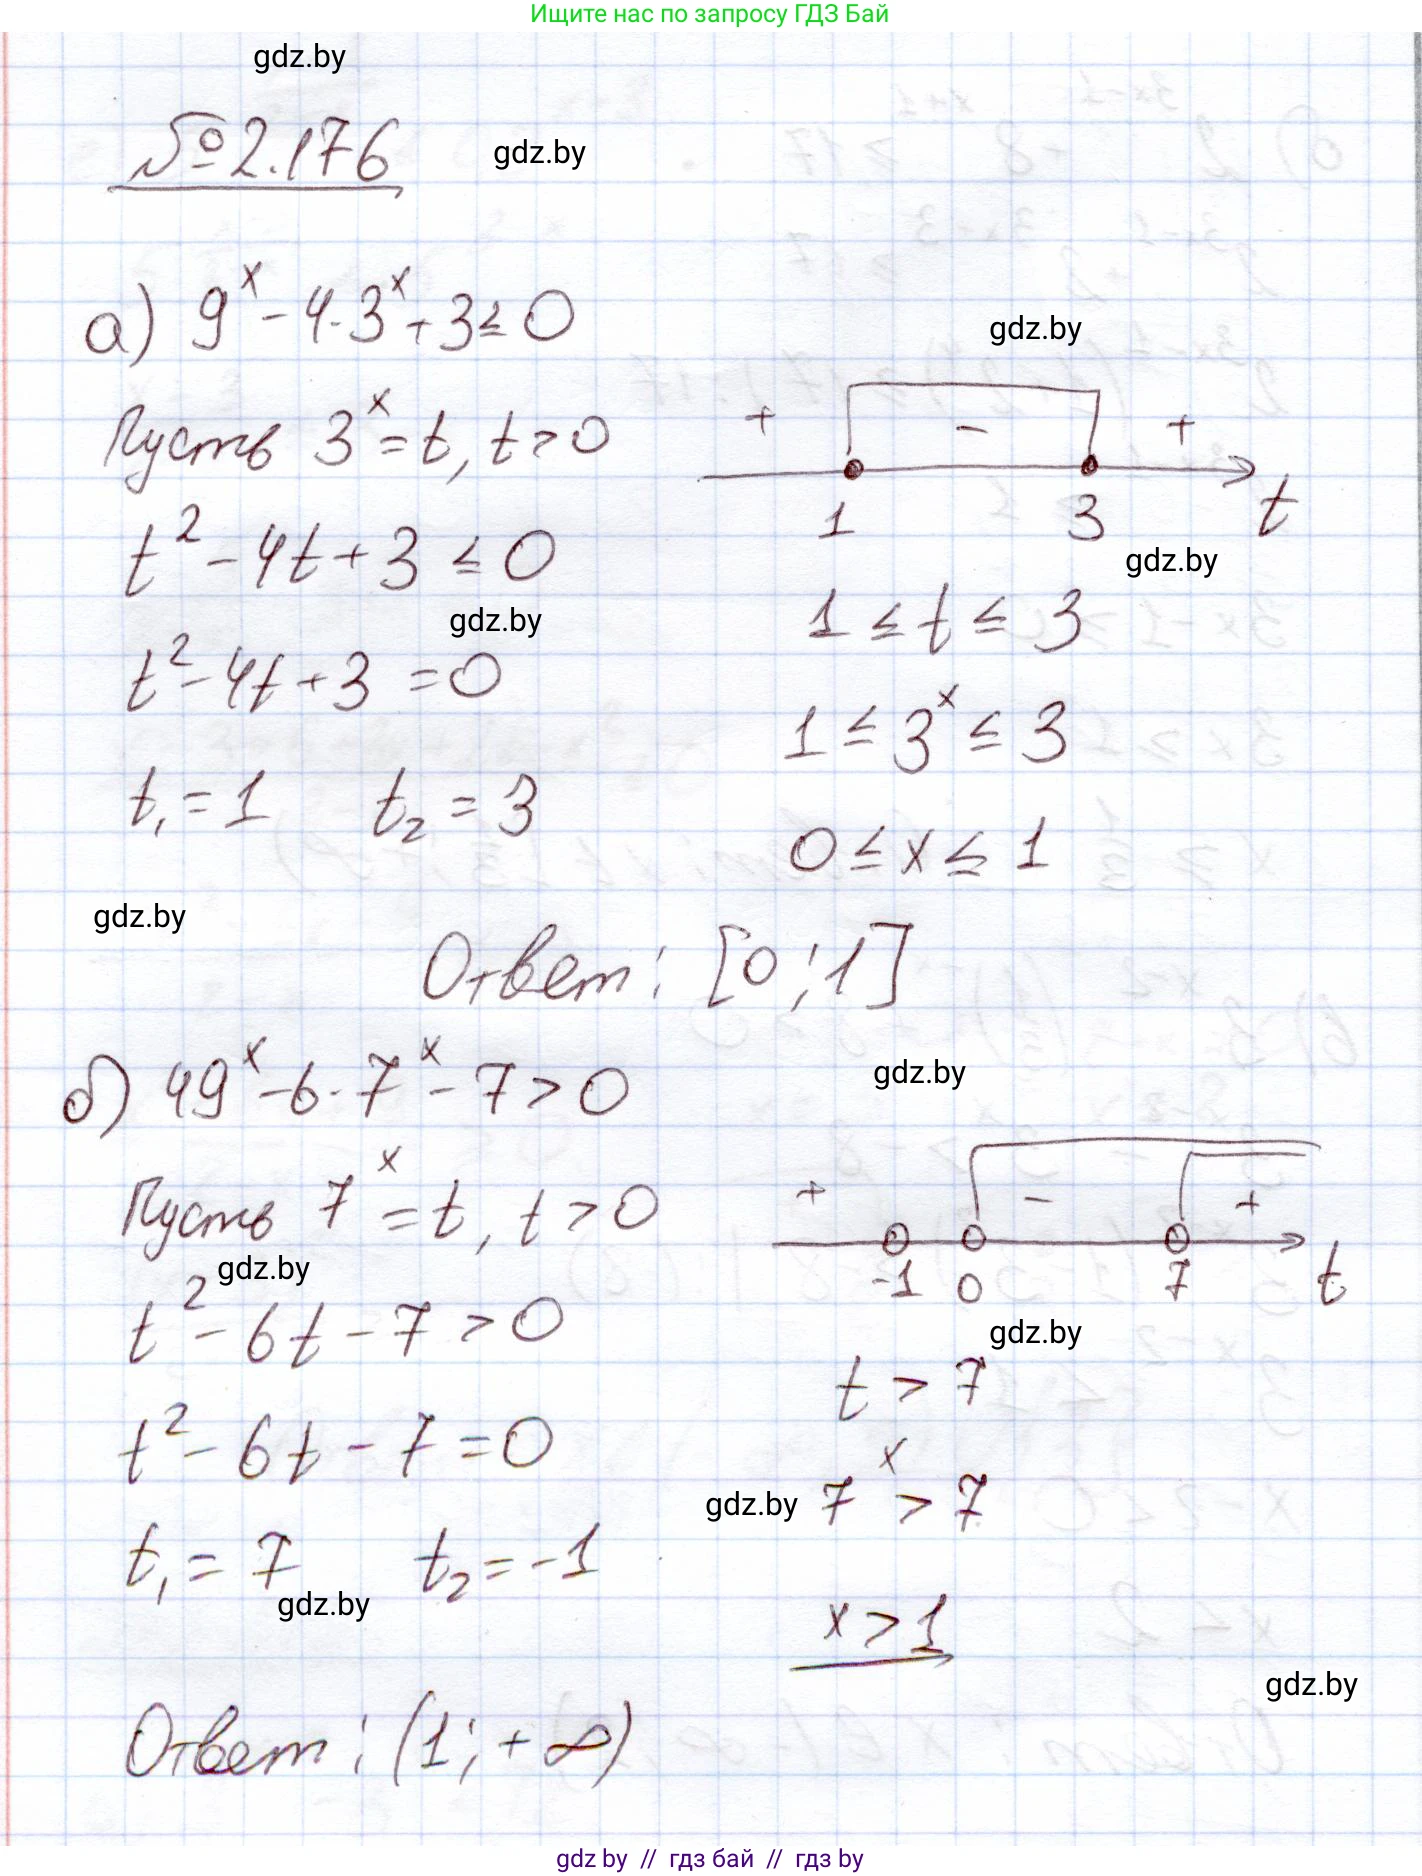 Ищите нас по запросу ГДЗ Бай
gdz.by
№2.176
gdz.by
а) 9^x - 4·3^x + 3 ≤ 0
gdz.by
Пусть 3^x = t, t > 0
+ - +
1 3 t
t^2 - 4t + 3 ≤ 0
gdz.by
gdz.by
1 ≤ t ≤ 3
t^2 - 4t + 3 = 0
1 ≤ 3^x ≤ 3
t₁ = 1 t₂ = 3
0 ≤ x ≤ 1
gdz.by
Ответ: [0; 1]
б) 49^x - 6·7^x - 7 > 0
gdz.by
Пусть 7^x = t, t > 0
+ - +
-1 0 7 t
gdz.by
t^2 - 6t - 7 > 0
gdz.by
t > 7
t^2 - 6t - 7 = 0
gdz.by
7^x > 7
t₁ = 7 t₂ = -1
gdz.by
x > 1
gdz.by
Ответ: (1; +∞)
gdz.by // гдз бай // гдз by